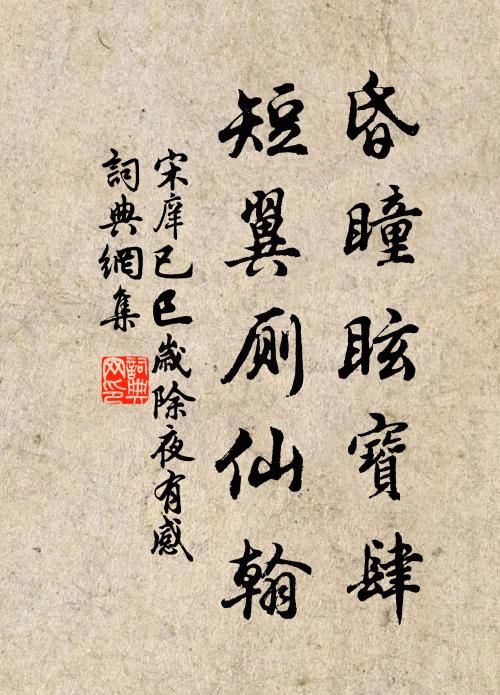 昏瞳眩寶肆
短翼厠仙翰
宋庠己巳歲除夜有感
詞典網集
詞典
网印